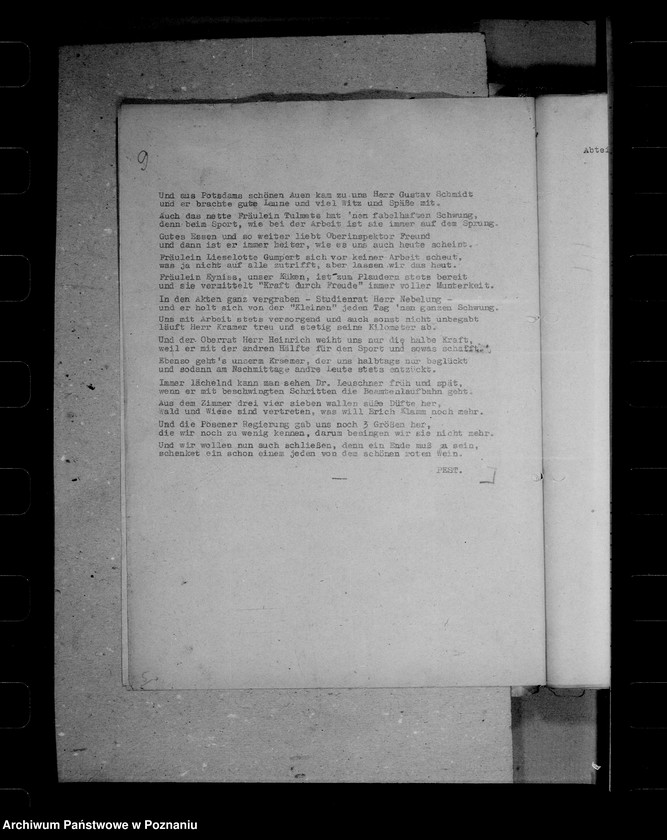 9
Abtei
Und aus Potsdams schönen Auen kam zu uns Herr Gustav Schmidt
und er brachte gute Laune und viel Witz und Späße mit.
Auch das nette Fräulein Tulmats hat 'nen fabelhaften Schwung,
denn beim Sport, wie bei der Arbeit ist sie immer auf dem Sprung.
Gutes Essen und so weiter liebt Oberinspektor Freund
und dann ist er immer heiter, wie es uns auch heute scheint.
Fräulein Lieselotte Gumpert sich vor keiner Arbeit scheut,
was ja nicht auf alle zutrifft, aber lassen wir das heut.
Fräulein Kyniss, unser Küken, ist zum Plaudern stets bereit
und sie vermittelt "Kraft durch Freude" immer voller Munterkeit.
In den Akten ganz vergraben - Studienrat Herr Nebelung -
und er holt sich von der "Kleinen" jeden Tag 'nen ganzen Schwung.
Uns mit Arbeit stets versorgend und auch sonst nicht unbegabt
läuft Herr Kramer treu und stetig seine Kilometer ab.
Und der Oberrat Herr Heinrich weiht uns nur die halbe Kraft,
weil er mit der andren Hälfte für den Sport und sowas schafft.
Ebenso geht's unserm Kraemer, der uns halbtags nur beglückt
und sodann am Nachmittage andre Leute stets entzückt.
Immer lächelnd kann man sehen Dr. Leuschner früh und spät,
wenn er mit beschwingten Schritten die Beamtenlaufbahn geht.
Aus dem Zimmer drei vier sieben wallen süße Düfte her,
Wald und Wiese sind vertreten, was will Erich Klamm noch mehr.
Und die Posener Regierung gab uns noch 3 Größen her,
die wir noch zu wenig kennen, darum besingen wir sie nicht mehr.
Und wir wollen nun auch schließen, denn ein Ende muß ja sein,
schenket ein schon einem jeden von dem schönen roten Wein.
PEST.
Archiwum Państwowe w Poznaniu